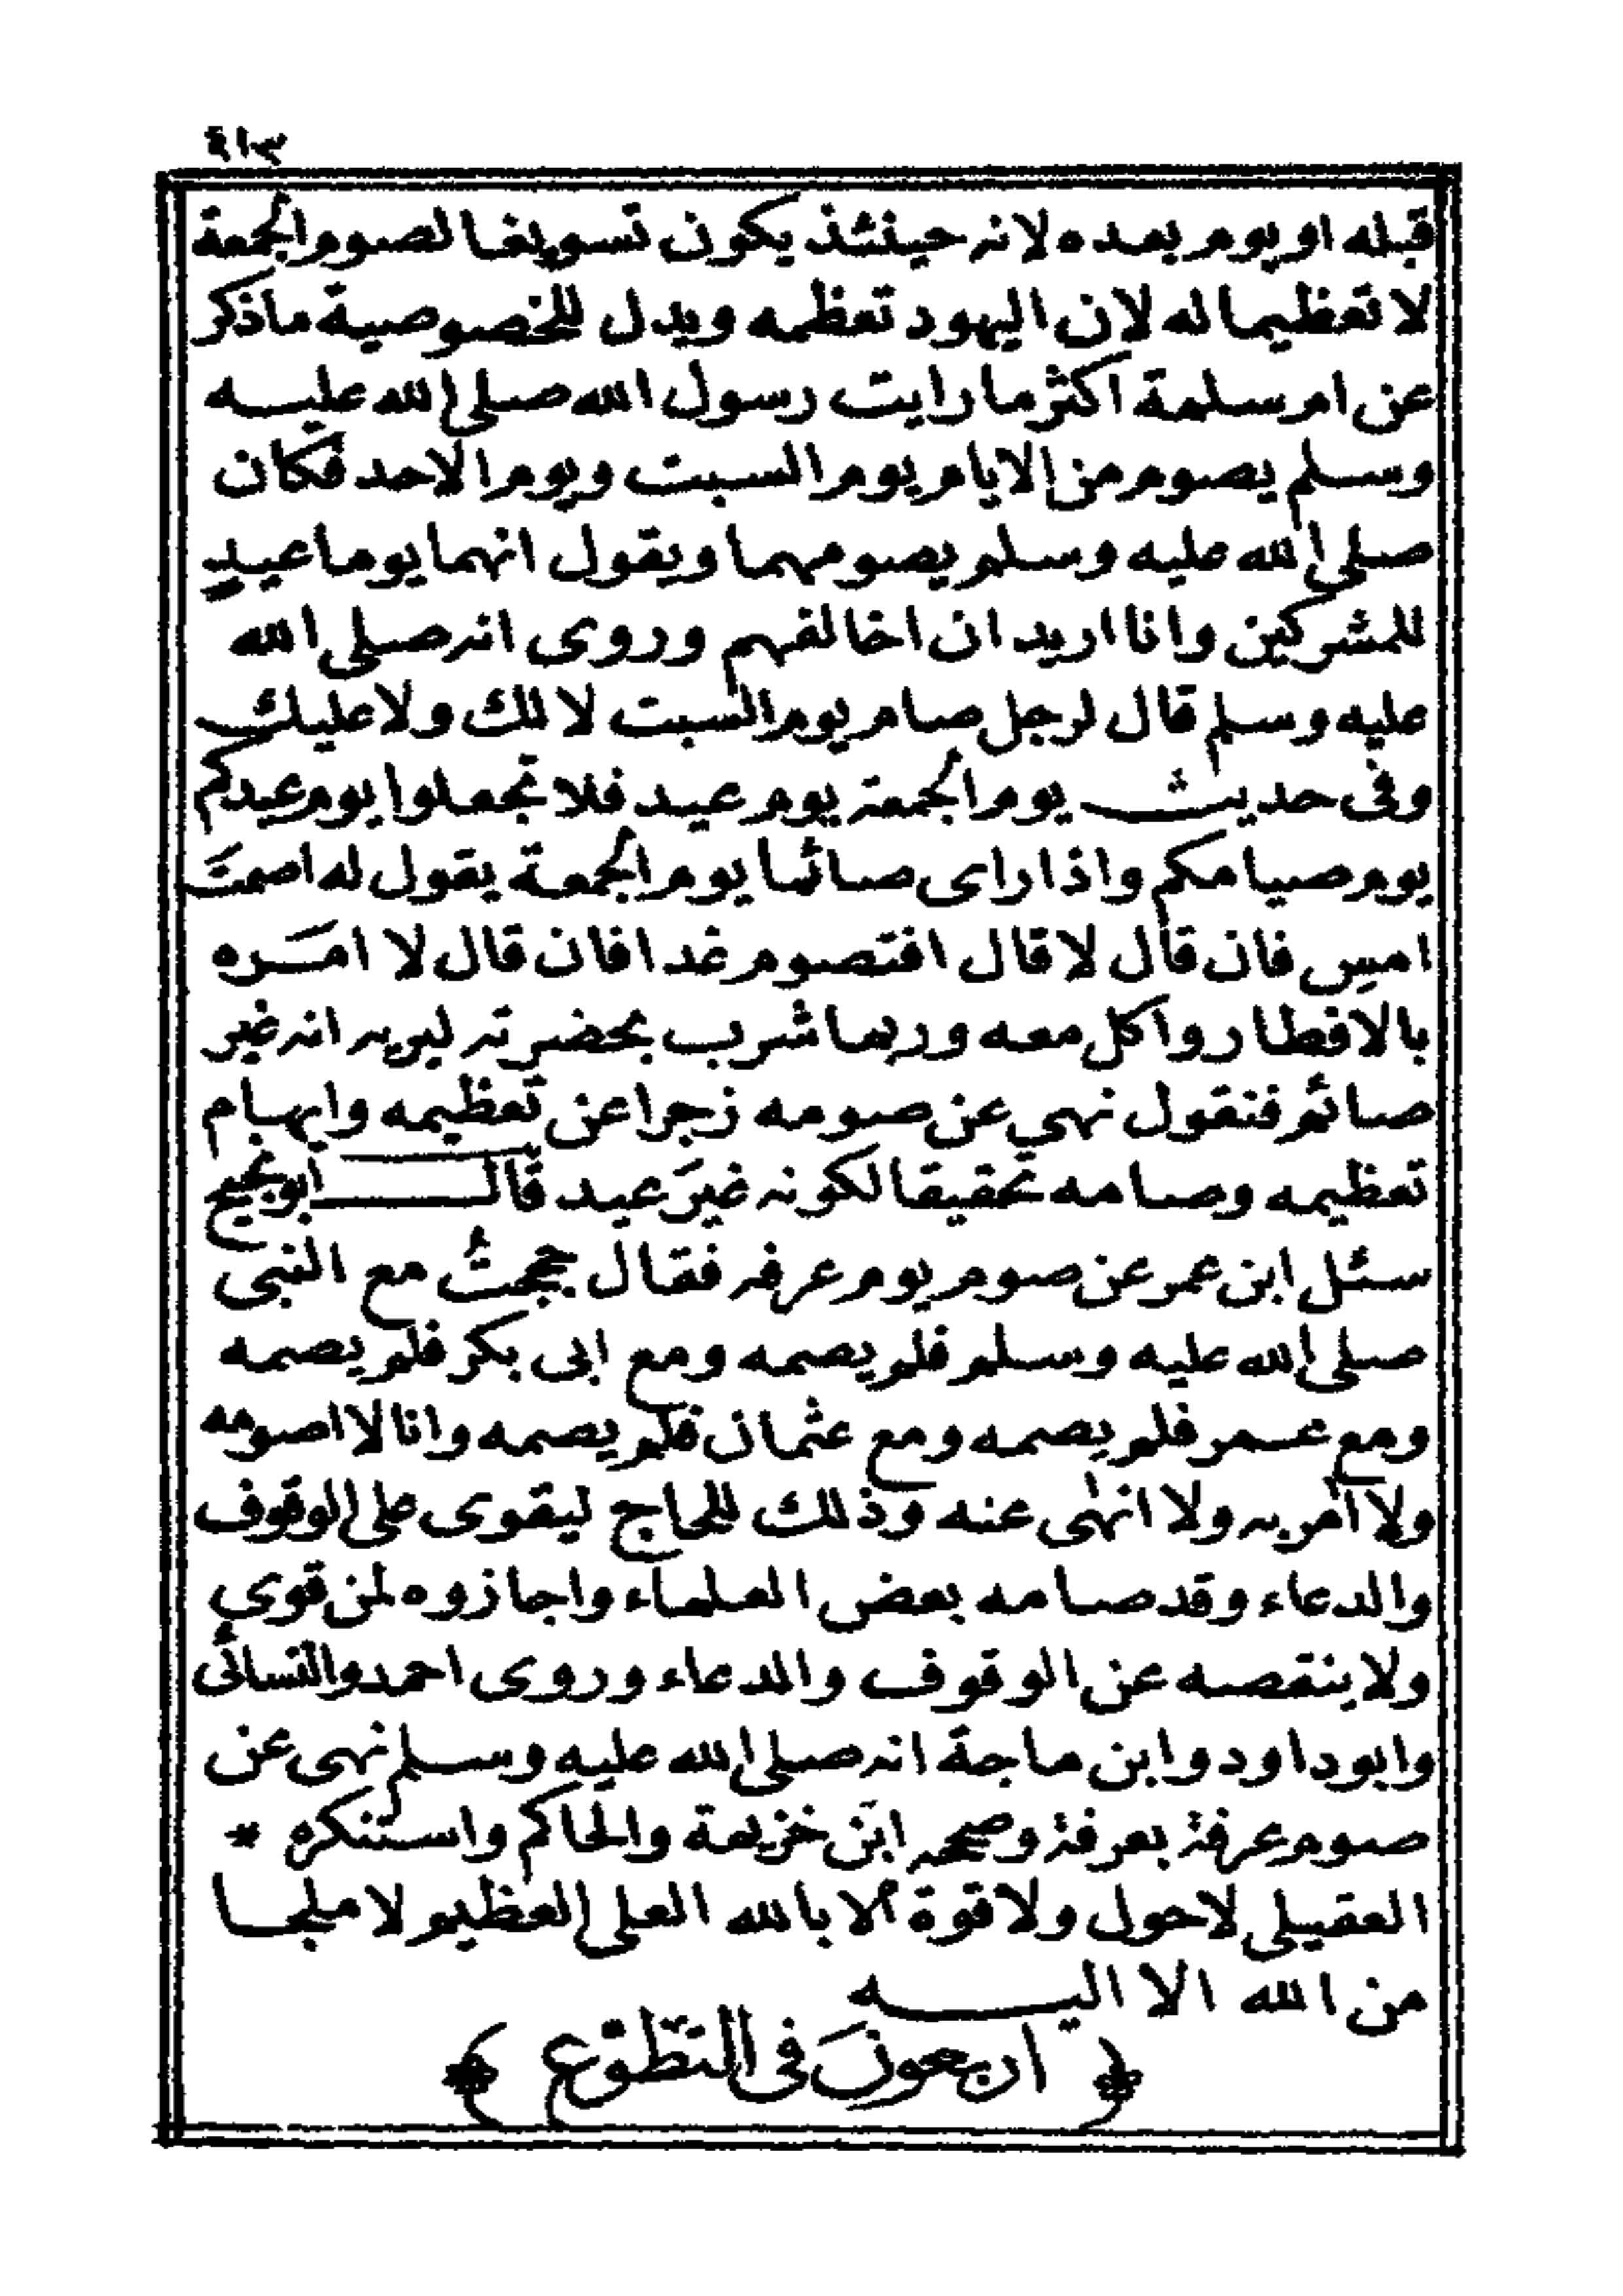 ٤١٣
قبله او يوم بعده لانه حينئذ يكون تسويغا لصوم الجمعة
لا تعظيما له لان اليهود تعظمه ويدل للخصوصية ماذكر
عن ام سلمة اكثر ما رايت رسول الله صلى الله عليه
وسلم يصوم من الايام يوم السبت ويوم الاحد فكان
صلى الله عليه وسلم يصومهما ويقول انهما يوما عيدٍ
للمشركين وانا اريد ان اخالفهم وروى انه صلى الله
عليه وسلم قال لرجل صام يوم السبت لا لك ولا عليك
وفى حديث يوم الجمعة يوم عيد فلا تجعلوا يوم عيدكم
يوم صيامكم واذا راى صائما يوم الجمعة يقول له اصمتَ
امسِ فان قال لا قال افتصوم غدا فان قال لا امَره
بالافطار واكل معه وربما شرب بحضرته ليريه انه غير
صائم فنقول نهي عن صومه زجرا عن تعظيمه وايهام
تعظيمه وصامه تحقيقا لكونه غيرَ عيد قال ابو نجيح
سئل ابن عمر عن صوم يوم عرفه فقال حججتُ مع النبى
صلى الله عليه وسلم فلم يصمه ومع ابى بكر فلم يصمه
ومع عمر فلم يصمه ومع عثمان فلم يصمه وانا لا اصومه
ولا آمر به ولا انهى عنه وذلك للحاج ليقوى على الوقوف
والدعاء وقد صامه بعض العلماء واجازوه لمن قوي
ولا ينقصه عن الوقوف والدعاء وروى احمد والنسائى
وابو داود وابن ماجة انه صلى الله عليه وسلم نهى عن
صوم عرفة بعرفة وصححه ابنَ خزيمة والحاكم واستنكره *
العقيلى لاحول ولا قوة الا بالله العلى العظيم لا ملجا
من الله الا اليه
﴿ اربعونَ فى التطوّع ﴾